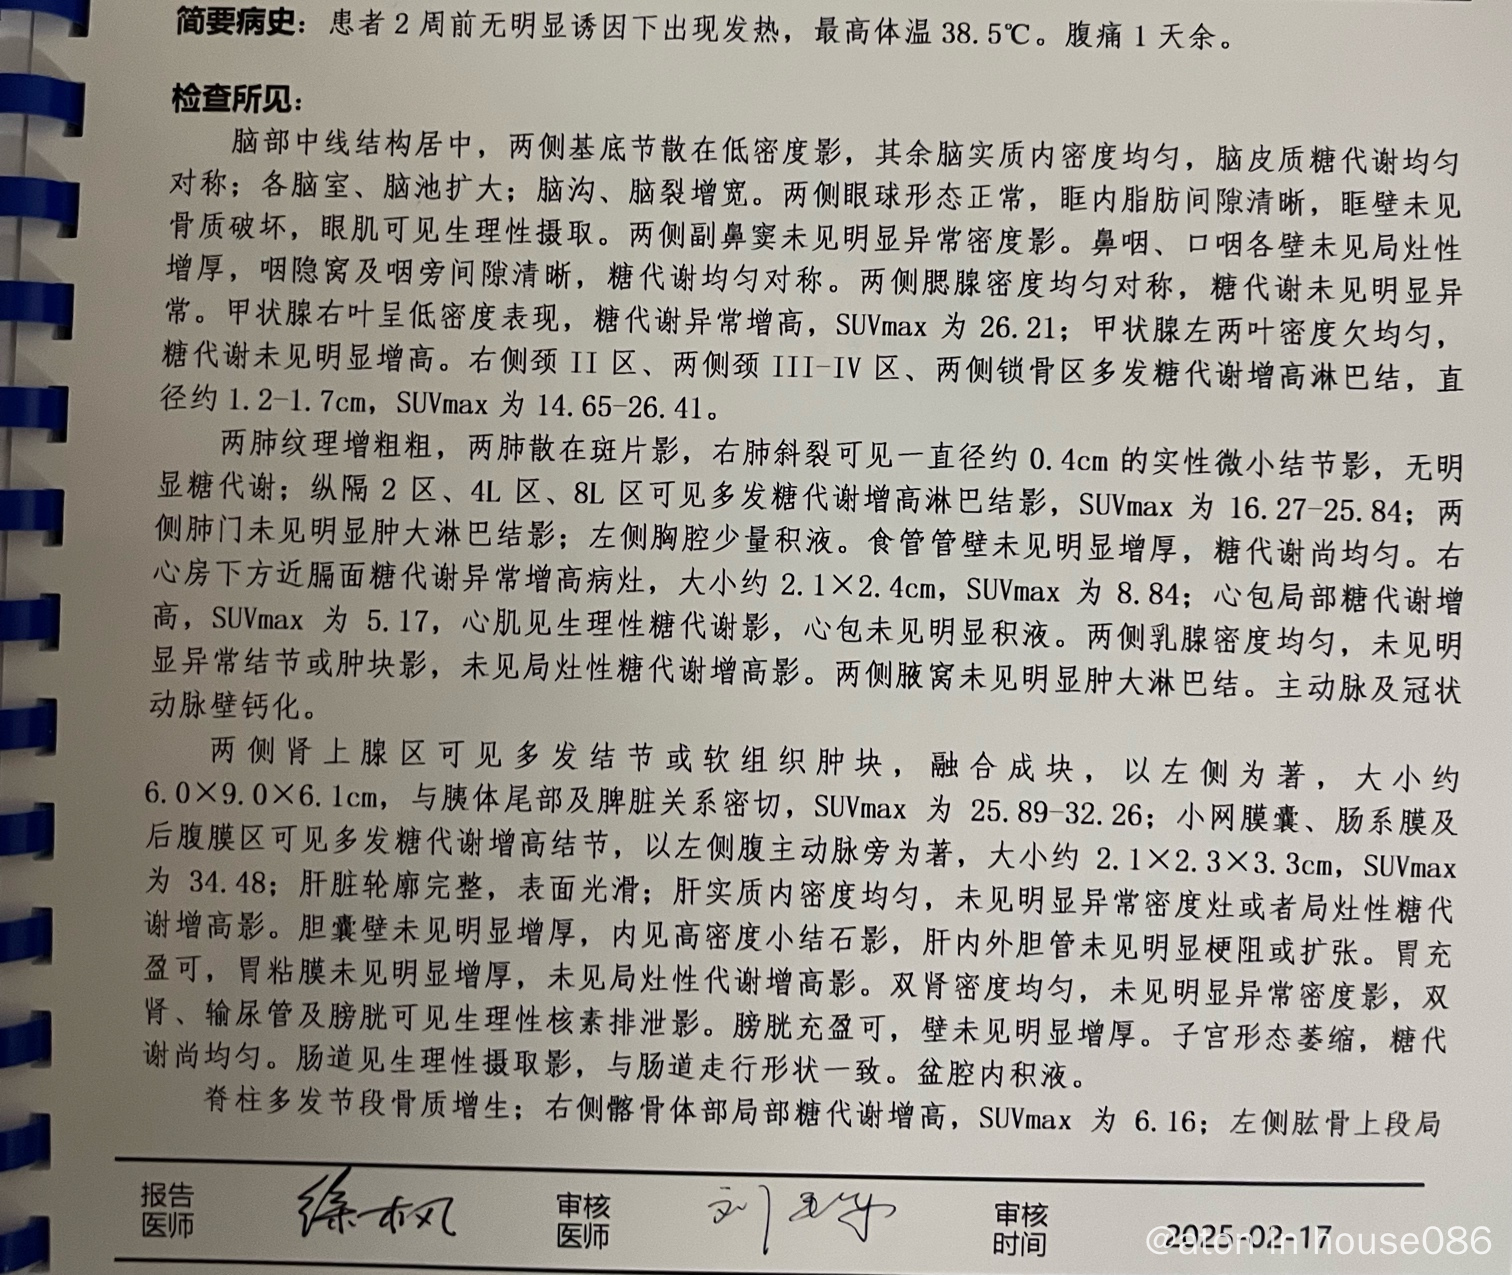 简要病史：患者 2 周前无明显诱因下出现发热，最高体温 38.5℃。腹痛 1 天余。
检查所见：
脑部中线结构居中，两侧基底节散在低密度影，其余脑实质内密度均匀，脑皮质糖代谢均匀
对称；各脑室、脑池扩大；脑沟、脑裂增宽。两侧眼球形态正常，眶内脂肪间隙清晰，眶壁未见
骨质破坏，眼肌可见生理性摄取。两侧副鼻窦未见明显异常密度影。鼻咽、口咽各壁未见局灶性
增厚，咽隐窝及咽旁间隙清晰，糖代谢均匀对称。两侧腮腺密度均匀对称，糖代谢未见明显异
常。甲状腺右叶呈低密度表现，糖代谢异常增高，SUVmax 为 26.21；甲状腺左两叶密度欠均匀，
糖代谢未见明显增高。右侧颈 II 区、两侧颈 III-IV 区、两侧锁骨区多发糖代谢增高淋巴结，直
径约 1.2-1.7cm，SUVmax 为 14.65-26.41。
两肺纹理增粗粗，两肺散在斑片影，右肺斜裂可见一直径约 0.4cm 的实性微小结节影，无明
显糖代谢；纵隔 2 区、4L 区、8L 区可见多发糖代谢增高淋巴结影，SUVmax 为 16.27-25.84；两
侧肺门未见明显肿大淋巴结影；左侧胸腔少量积液。食管管壁未见明显增厚，糖代谢尚均匀。右
心房下方近膈面糖代谢异常增高病灶，大小约 2.1×2.4cm，SUVmax 为 8.84；心包局部糖代谢增
高，SUVmax 为 5.17，心肌见生理性糖代谢影，心包未见明显积液。两侧乳腺密度均匀，未见明
显异常结节或肿块影，未见局灶性糖代谢增高影。两侧腋窝未见明显肿大淋巴结。主动脉及冠状
动脉壁钙化。
两侧肾上腺区可见多发结节或软组织肿块，融合成块，以左侧为著，大小约
6.0×9.0×6.1cm，与胰体尾部及脾脏关系密切，SUVmax 为 25.89-32.26；小网膜囊、肠系膜及
后腹膜区可见多发糖代谢增高结节，以左侧腹主动脉旁为著，大小约 2.1×2.3×3.3cm，SUVmax
为 34.48；肝脏轮廓完整，表面光滑；肝实质内密度均匀，未见明显异常密度灶或者局灶性糖代
谢增高影。胆囊壁未见明显增厚，内见高密度小结石影，肝内外胆管未见明显梗阻或扩张。胃充
盈可，胃粘膜未见明显增厚，未见局灶性代谢增高影。双肾密度均匀，未见明显异常密度影，双
肾、输尿管及膀胱可见生理性核素排泄影。膀胱充盈可，壁未见明显增厚。子宫形态萎缩，糖代
谢尚均匀。肠道见生理性摄取影，与肠道走行形状一致。盆腔内积液。
脊柱多发节段骨质增生；右侧髂骨体部局部糖代谢增高，SUVmax 为 6.16；左侧肱骨上段局
报告医师 徐 枫 审核医师 刘 审核时间 2025-02-17
@aton in house086